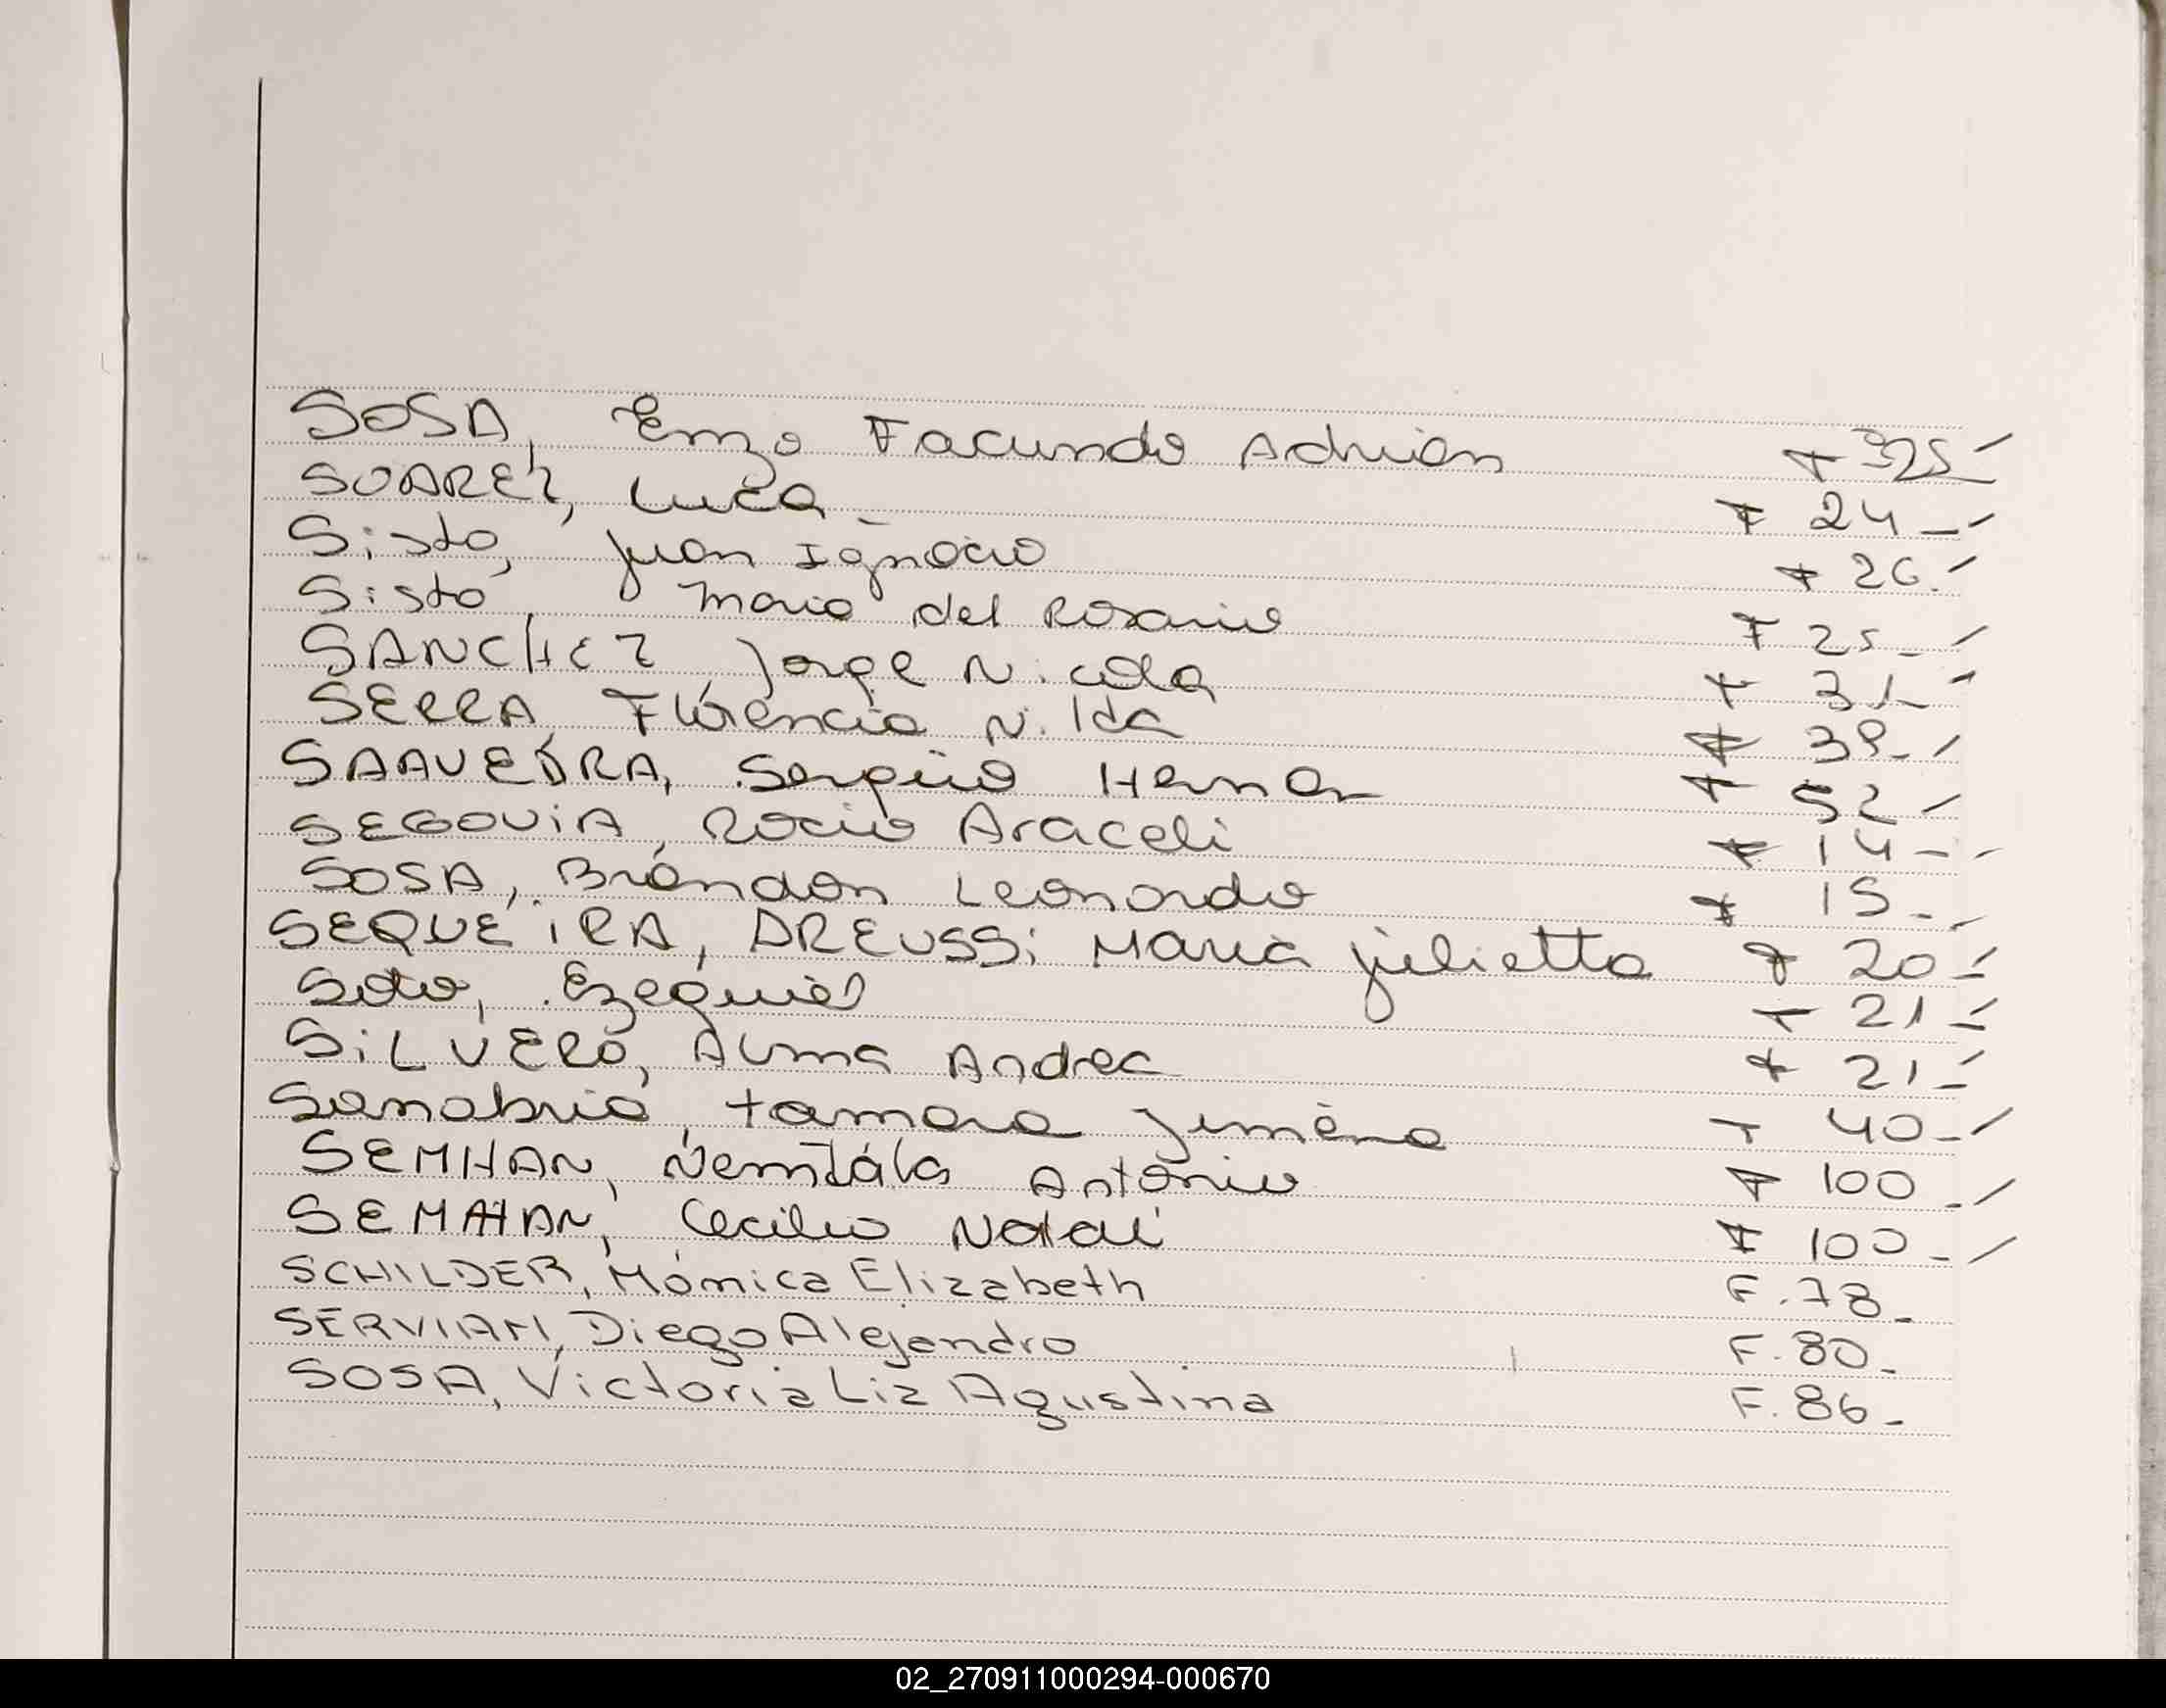 SOSA, Enzo Facundo Adrian F 325
SUAREZ, Luca F 24_
Sisto, Juan Ignacio F 26.
Sisto, Maria del Rosario F 25_
SANCHEZ, Jorge Nicola F 31
SERRA, Florencia Nilda F 38_
SAAVEDRA, Sergio Hernan F 52
SEGOVIA, Rocio Araceli F 14_
SOSA, Brandon Leonardo F 15_
SEQUEIRA, DREUSSi Maria julietta F 20_
Soto, Ezequiel F 21_
SiLVERO, Alma Andrea F 21_
Sanabria, tamara Jimena F 40_
SEMHAN, Nemtala Antonio F 100_
SEMHAN, Cecilio Natali F 100_
SCHILDER, Mónica Elizabeth F.78_
SERVIAN, Diego Alejandro F.80_
SOSA, Victoria Liz Agustina F.86_
02_270911000294-000670